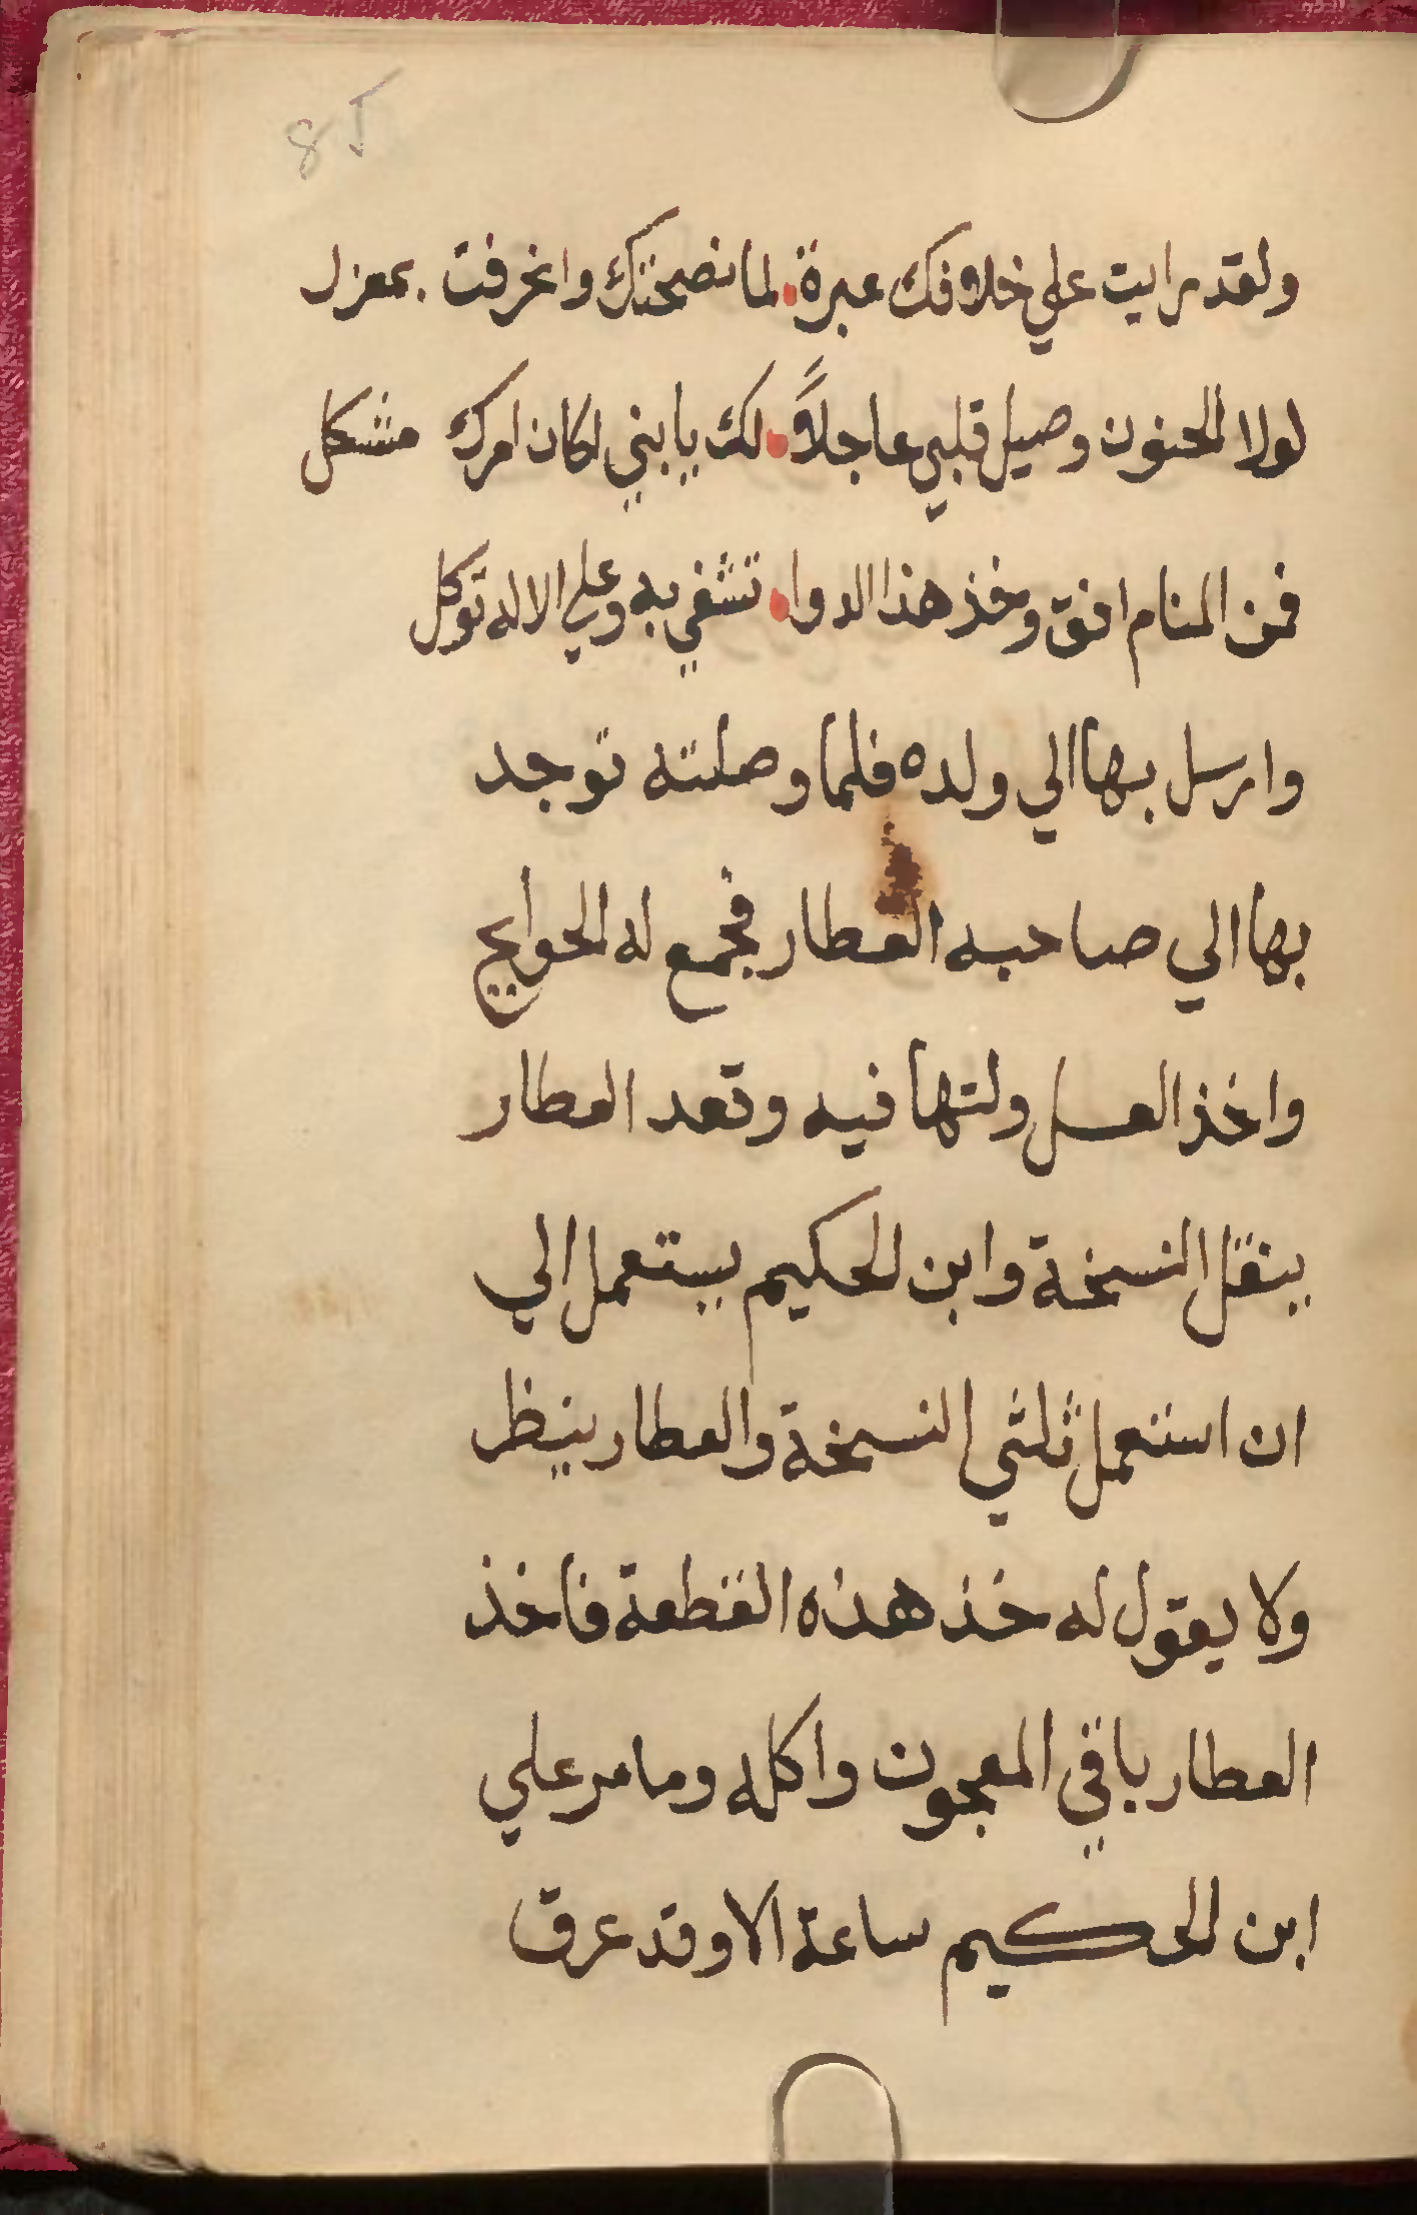 85
ولقد رايت علي خلافك عبرة. لما نصحتك وانحرفت. بمعزل
لولا الحنون وصيل قلبي عاجلاً. لك يا بني لكان امرك مشكل
فمن المنام افق وخذ هذا الدوا. تشفي به وعلي الاله توكل
وارسل بها الي ولده فلما وصلته توجد
بها الي صاحبه العطار فجمع له الحوايج
واخذ العسل ولتها فيه وقعد العطار
ينقل النسخة وابن الحكيم يستعمل الي
ان استعمل ثلثي النسخة والعطار ينظر
ولا يقول له خذ هذه القطعة فاخذ
العطار باقي المعجون واكله وما مر علي
ابن الحكيم ساعة الا وقد عرق